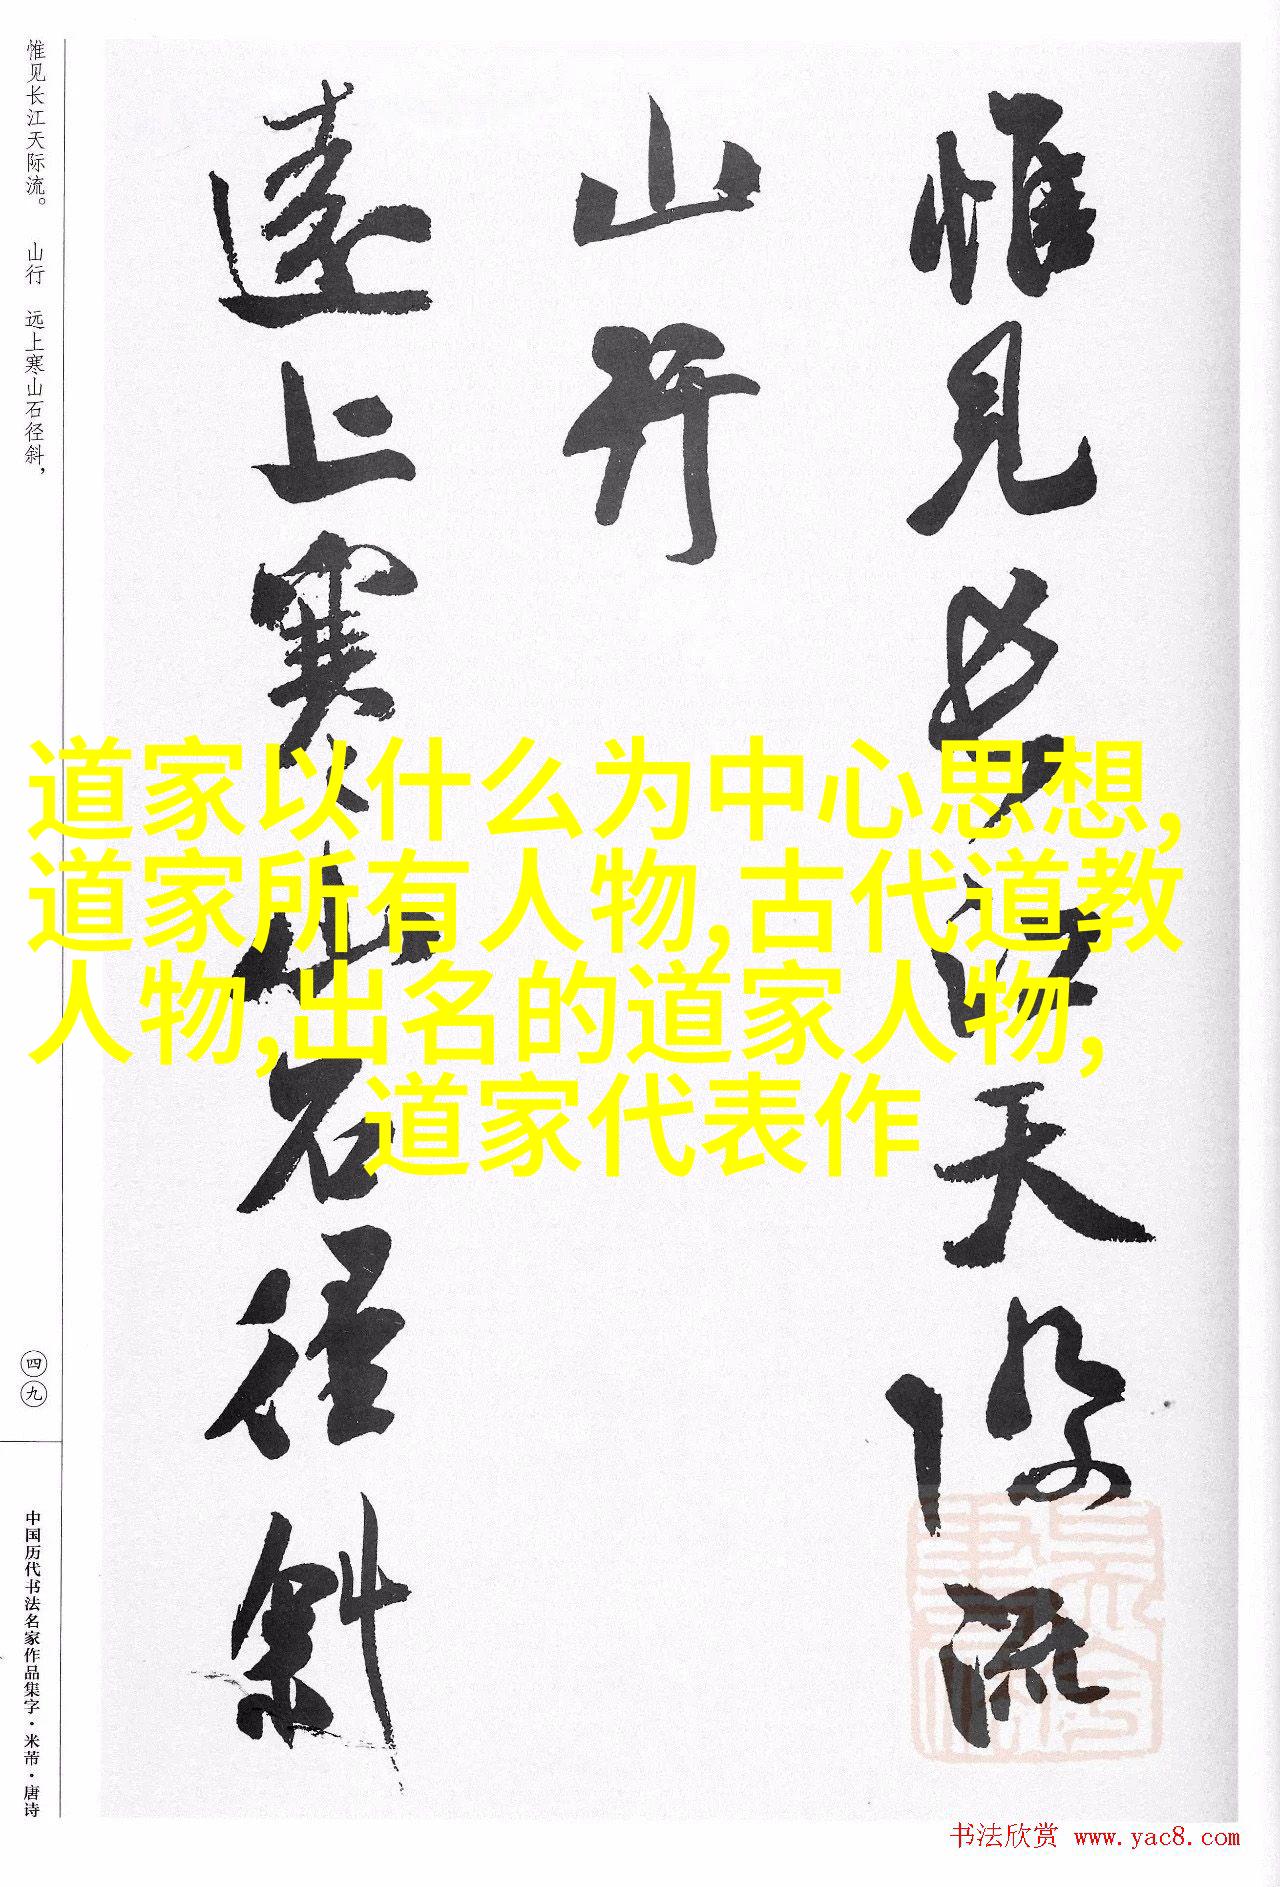 惟见长江天际流。 山行 远上寒山石径斜，
四九
中国历代书法名家作品集字·米芾·唐诗
惟見長江天際流
山行
遠上寒山石徑斜
道家以什么为中心思想,
道家所有人物,古代道教
人物,出名的道家人物,
道家代表作
书法欣赏 www.yac8.com